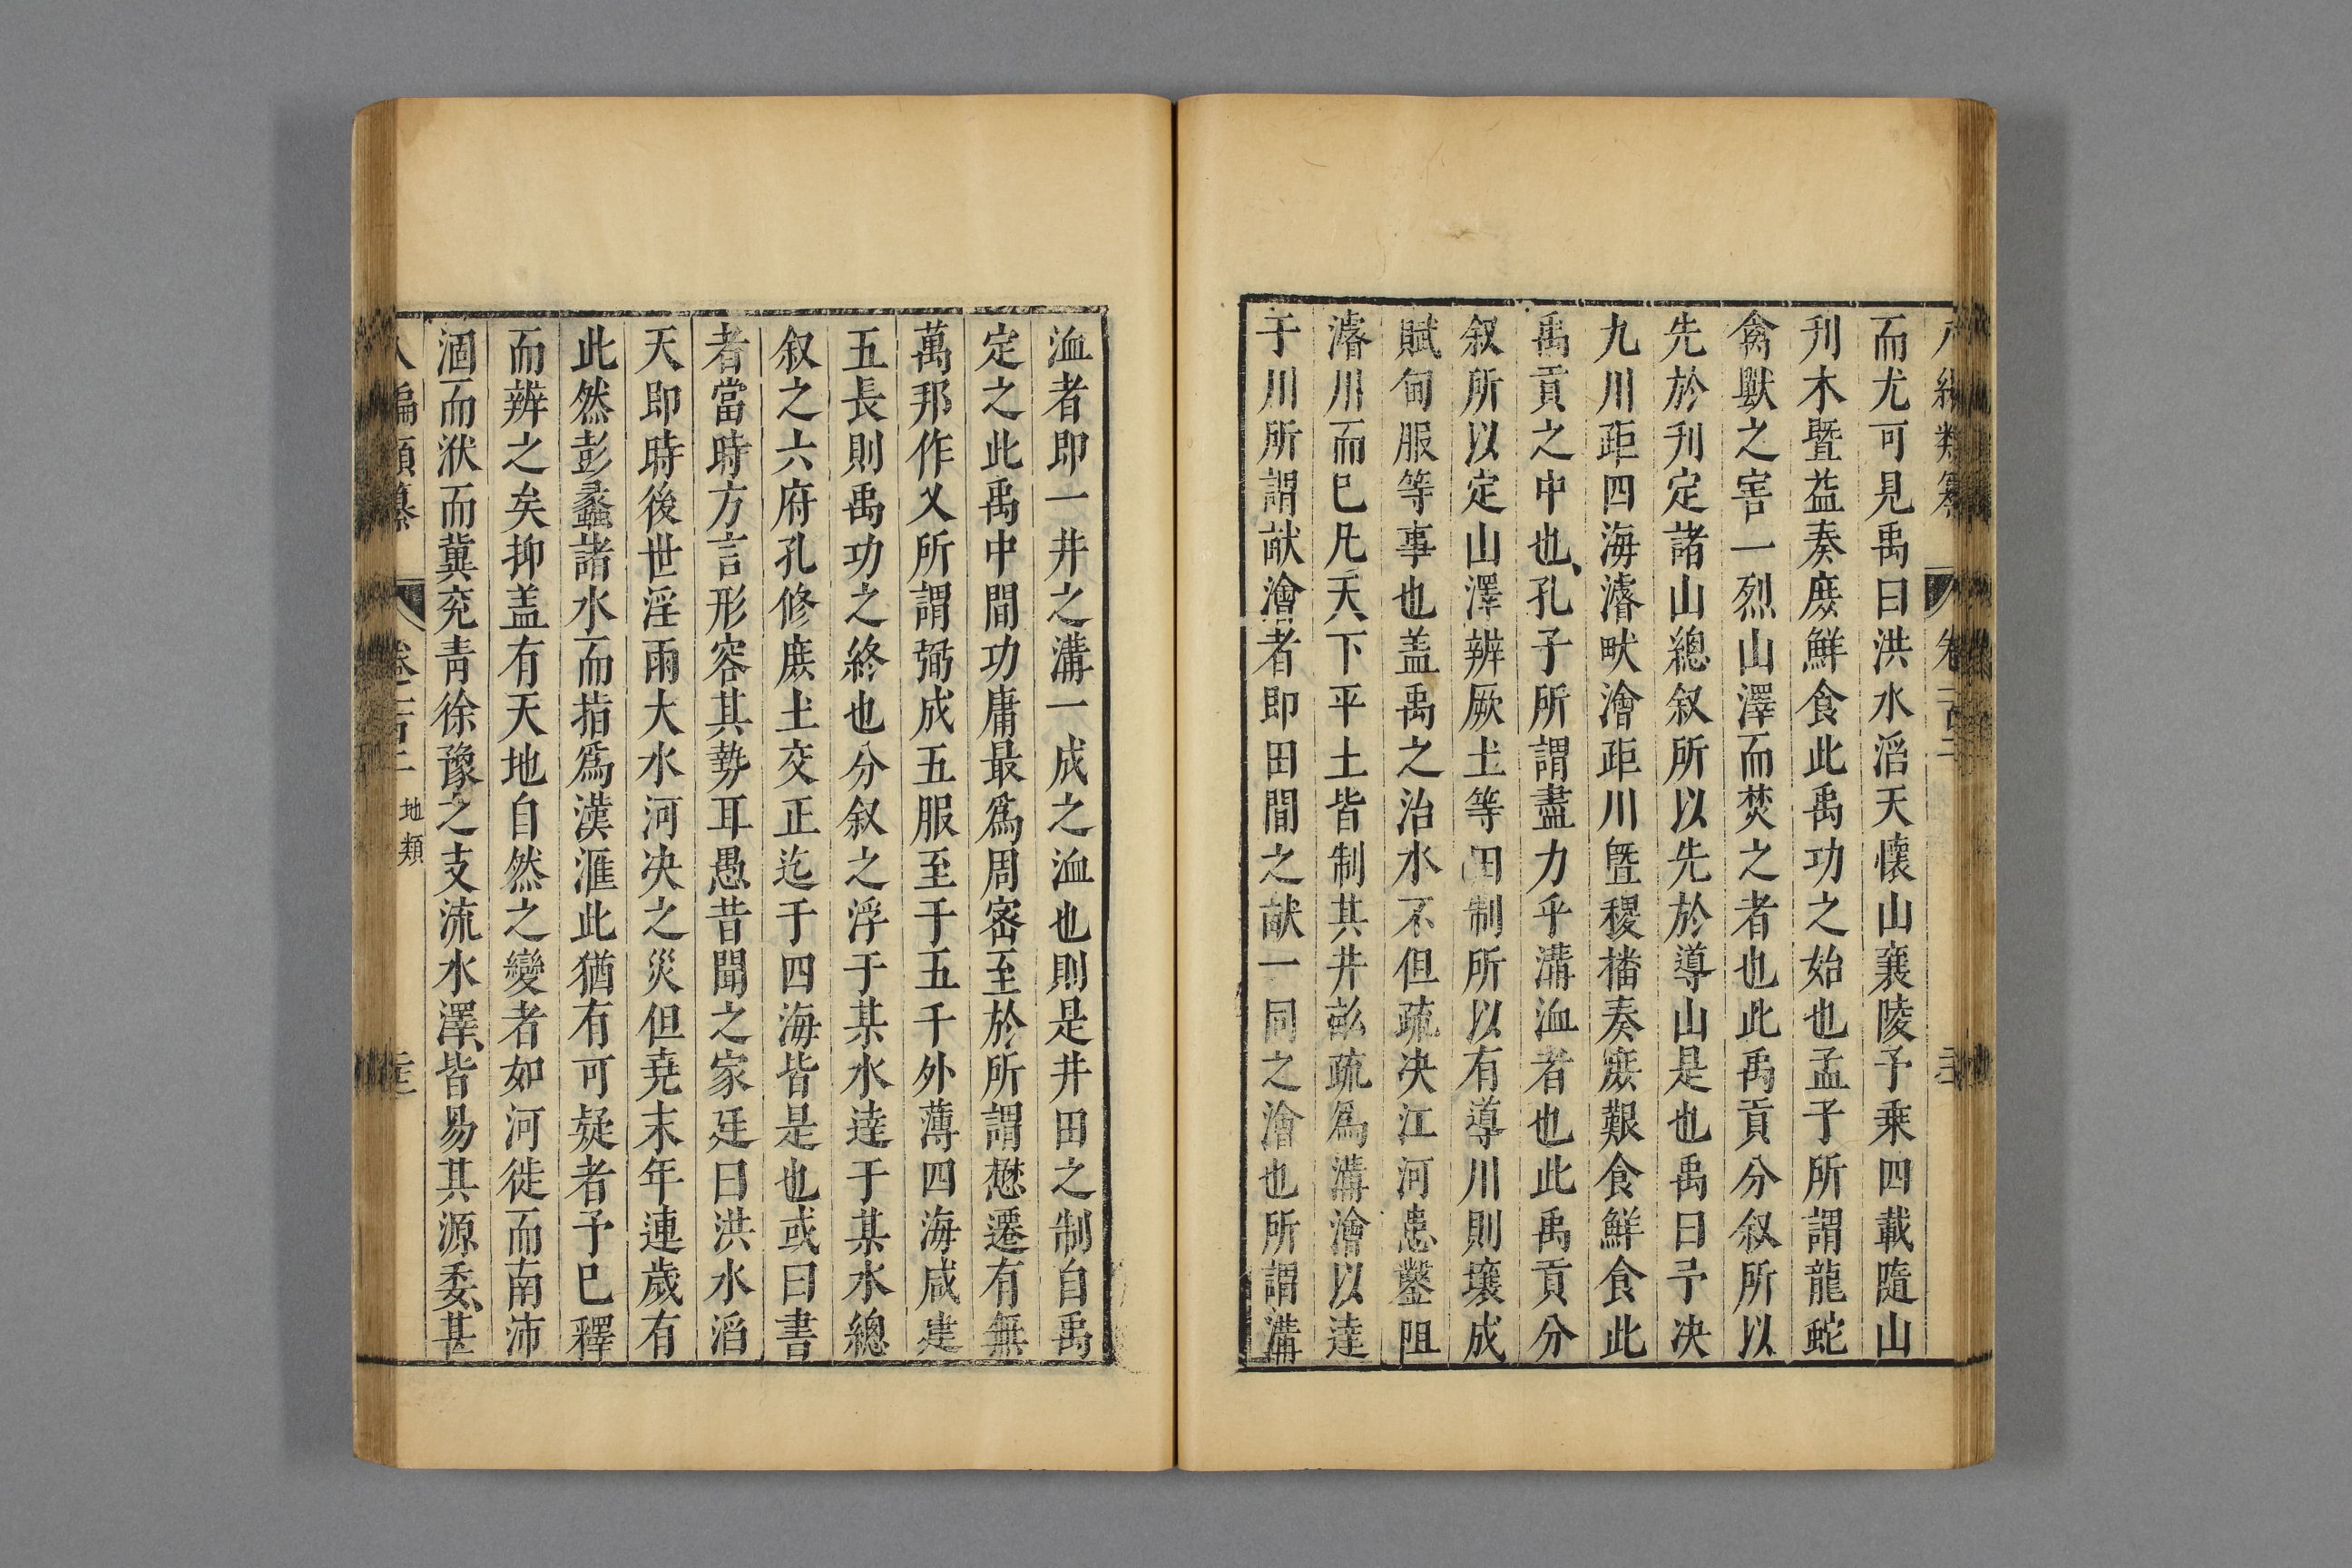 而尤可見禹曰洪水滔天懷山襄陵予乗四載隨山
刋木曁益奏庶鮮食此禹功之始也孟子所謂龍蛇
禽獸之害一烈山澤而焚之者也此禹貢分叙所以
先於刋定諸山總叙所以先於導山是也禹曰予决
九川距四海濬畎澮距川曁稷播奏庶艱食鮮食此
禹貢之中也孔子所謂盡力乎溝洫者也此禹貢分
叙所以定山澤辨厥土等田制所以有導川則壤成
賦甸服等事也盖禹之治水不但疏决江河患鑿阻
濬川而已凡天下平土皆制其井畝疏爲溝澮以達
于川所謂畎澮者即田間之畎一同之澮也所謂溝
洫者即一井之溝一成之洫也則是井田之制自禹
定之此禹中間功庸最爲周宻至於所謂懋遷有無
萬邦作乂所謂弼成五服至于五千外薄四海咸建
五長則禹功之終也分叙之浮于某水達于某水總
叙之六府孔修庶土交正迄于四海皆是也或曰書
者當時方言形容其勢耳愚昔聞之家廷曰洪水滔
天即時後世淫雨大水河决之災但堯末年連歲有
此然彭蠡諸水而指爲漢滙此猶有可疑者予已釋
而辨之矣抑盖有天地自然之變者如河徙而南沛
涸而洑而冀兖青徐豫之支流水澤皆易其源委甚
編類纂 卷一百二 地類